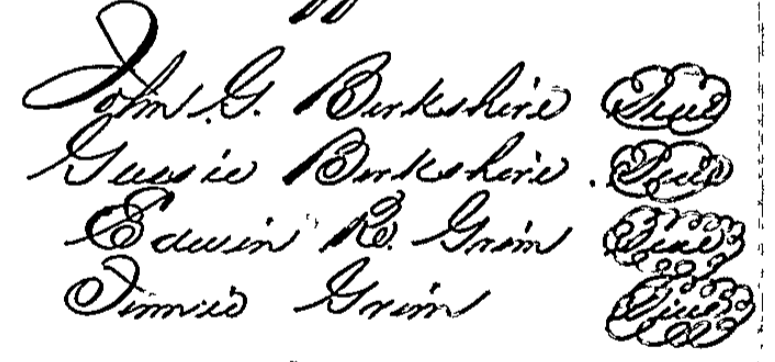 John G. Berkshire Seal
Gussie Berkshire. Seal
Edwin R. Grim Seal
Grim Seal